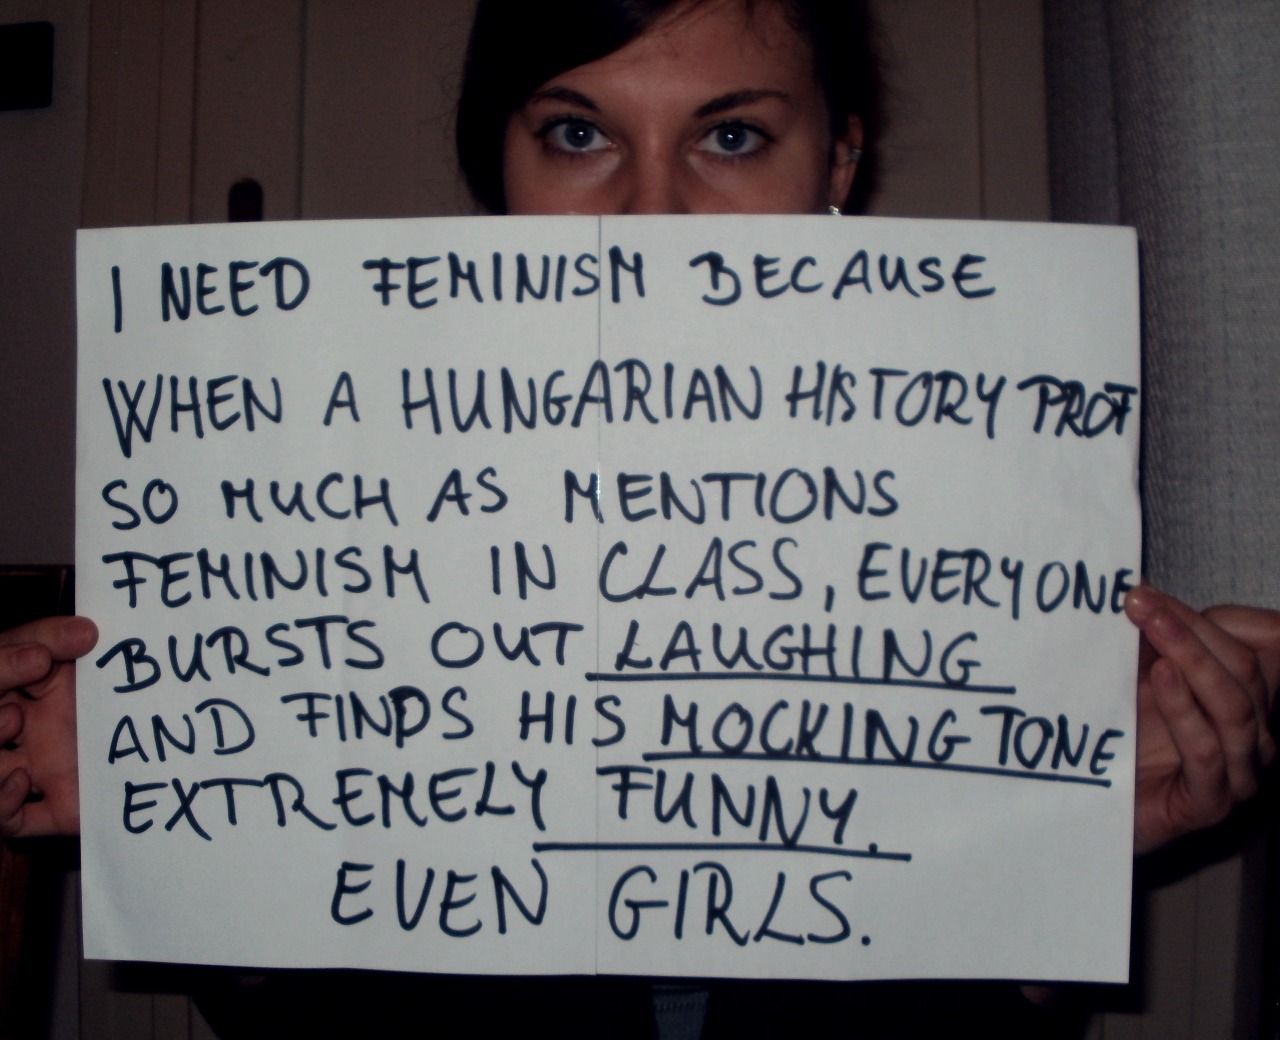 I NEED FEMINISM BECAUSE
WHEN A HUNGARIAN HISTORY PROF
SO MUCH AS MENTIONS
FEMINISM IN CLASS, EVERYONE
BURSTS OUT LAUGHING
AND FINDS HIS MOCKING TONE
EXTREMELY FUNNY.
EVEN GIRLS.